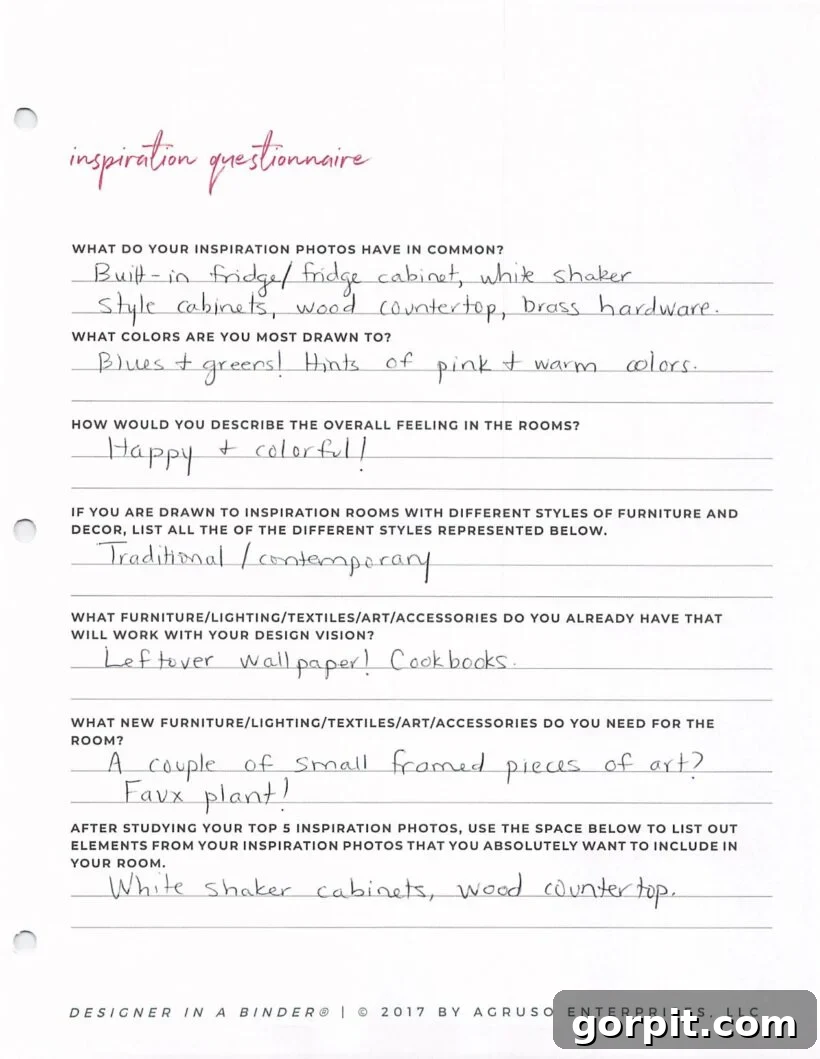 inspiration questionnaire
WHAT DO YOUR INSPIRATION PHOTOS HAVE IN COMMON?
Built-in fridge/ fridge cabinet, white shaker
style cabinets, wood countertop, brass hardware.
WHAT COLORS ARE YOU MOST DRAWN TO?
Blues + greens! Hints of pink + warm colors.
HOW WOULD YOU DESCRIBE THE OVERALL FEELING IN THE ROOMS?
Happy + colorful!
IF YOU ARE DRAWN TO INSPIRATION ROOMS WITH DIFFERENT STYLES OF FURNITURE AND
DECOR, LIST ALL THE OF THE DIFFERENT STYLES REPRESENTED BELOW.
Traditional / contemporary
WHAT FURNITURE/LIGHTING/TEXTILES/ART/ACCESSORIES DO YOU ALREADY HAVE THAT
WILL WORK WITH YOUR DESIGN VISION?
Leftover wallpaper! Cookbooks.
WHAT NEW FURNITURE/LIGHTING/TEXTILES/ART/ACCESSORIES DO YOU NEED FOR THE
ROOM?
A couple of small framed pieces of art?
Faux plant!
AFTER STUDYING YOUR TOP 5 INSPIRATION PHOTOS, USE THE SPACE BELOW TO LIST OUT
ELEMENTS FROM YOUR INSPIRATION PHOTOS THAT YOU ABSOLUTELY WANT TO INCLUDE IN
YOUR ROOM.
White shaker cabinets, wood countertop.
DESIGNER IN A BINDER® | © 2017 BY AGRUSO ENTERPRISES, LLC
gorpit.com